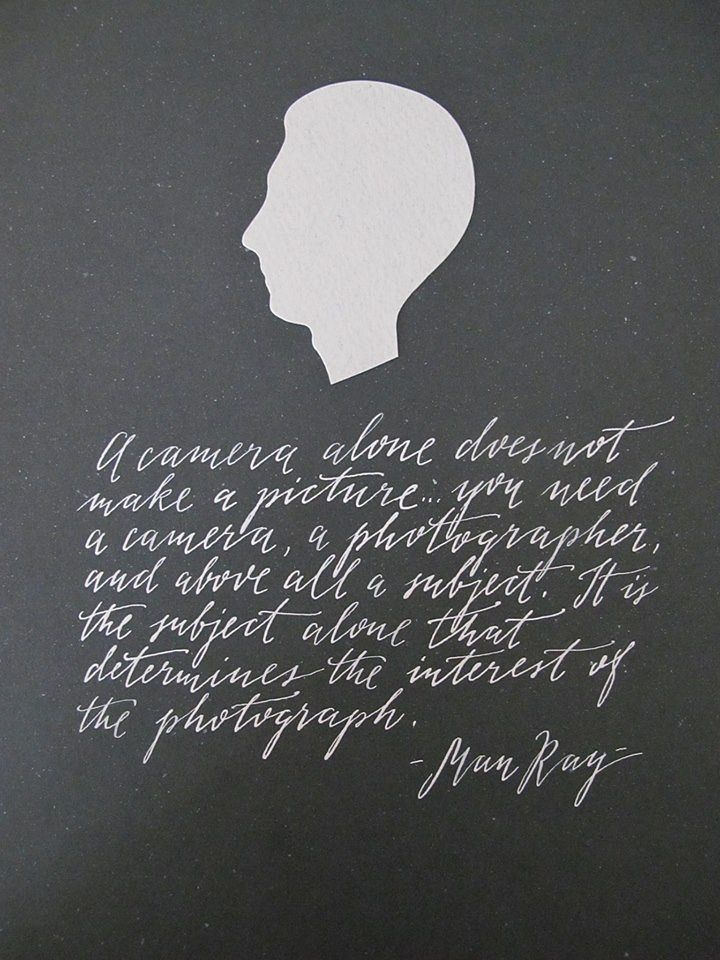 A camera alone does not
make a picture... you need
a camera, a photographer,
and above all a subject. It is
the subject alone that
determines the interest of
the photograph.
- Man Ray -